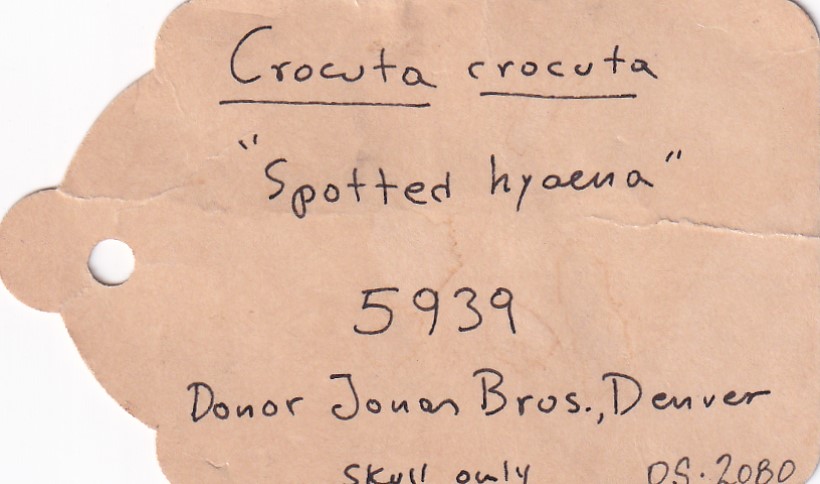 Crocuta crocuta
"Spotted hyaena"
5939
Donor Jonas Bros., Denver
Skull only OS.2080